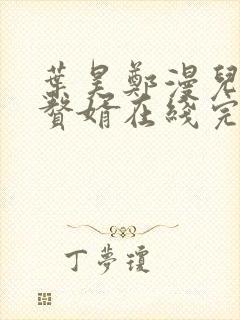 葉昊鄭漫兒
贅婿在綫完
丁夢瓊